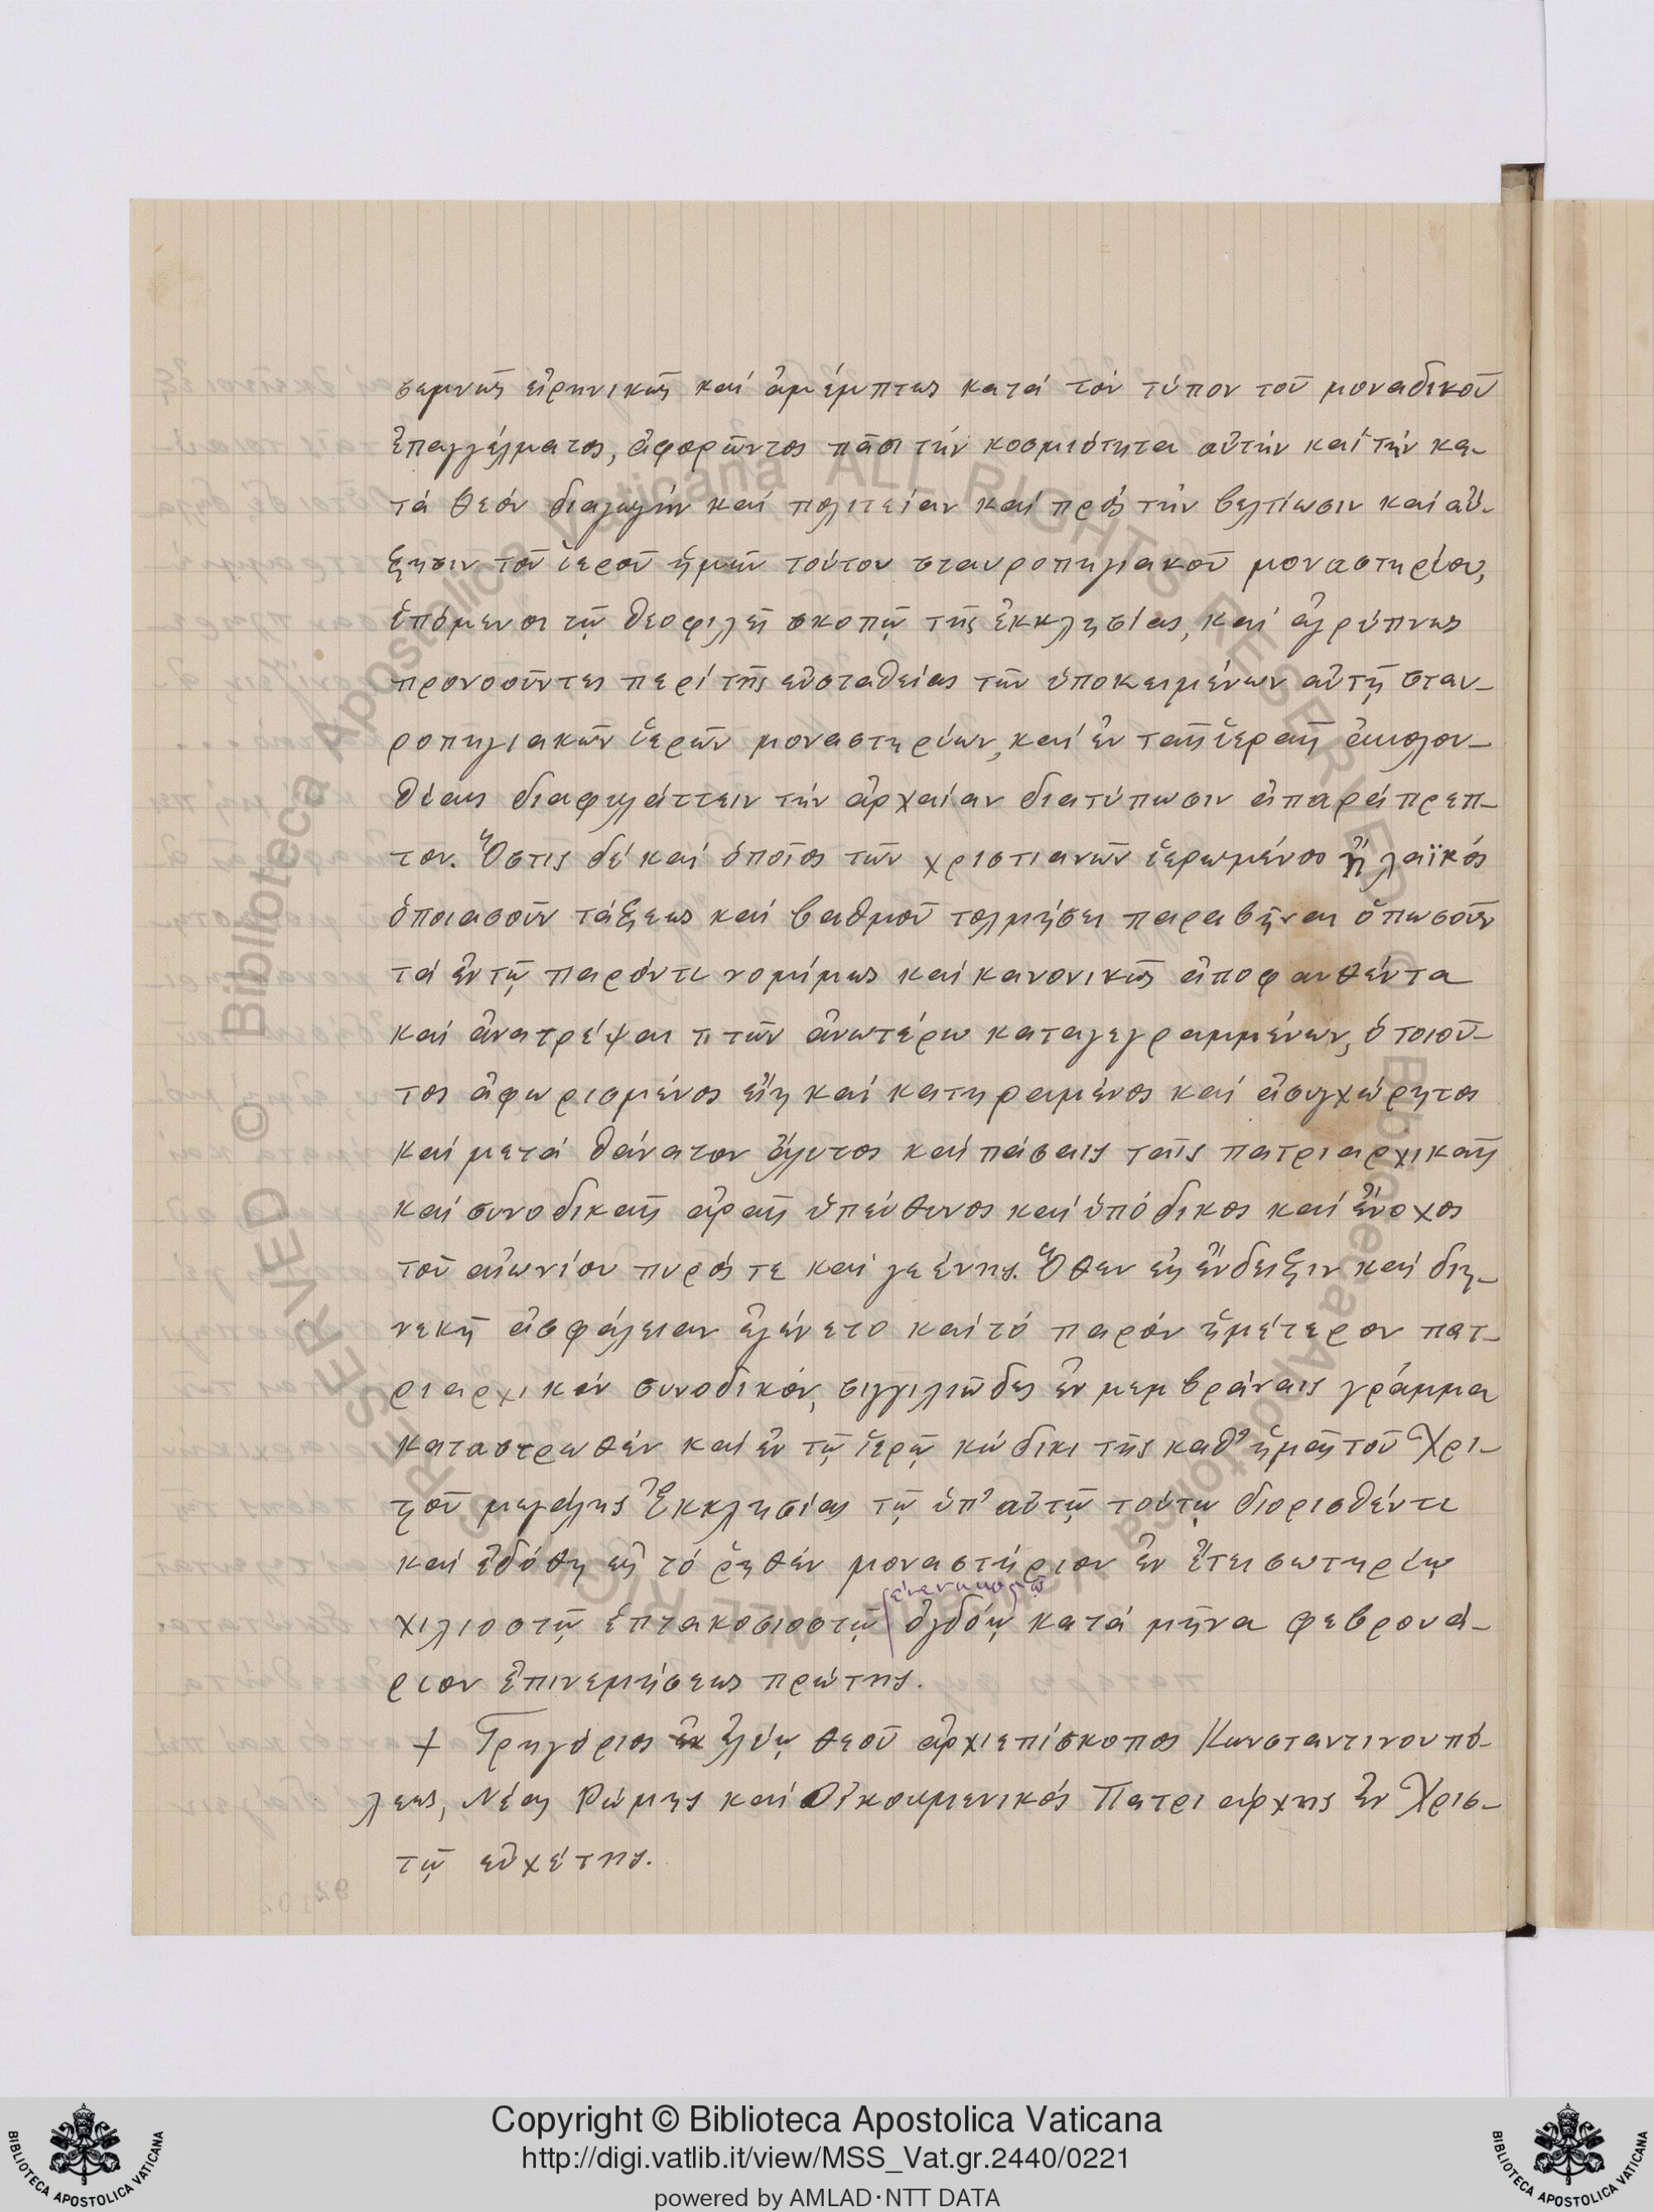 σεμνῶς εἰρηνικῶς καὶ ἀμέμπτως κατὰ τὸν τύπον τοῦ μοναδικοῦ
ἐπαγγέλματος, ἀφορῶντος πᾶσι τὴν κοσμιότητα αὐτὴν καὶ τὴν κα-
τὰ θεὸν διαγωγὴν καὶ πολιτείαν καὶ πρὸς τὴν βελτίωσιν καὶ αὔ-
ξησιν τοῦ ἱεροῦ ἡμῶν τούτου σταυροπηγιακοῦ μοναστηρίου,
ἑπόμενοι τῷ θεοφιλεῖ σκοπῷ τῆς ἐκκλησίας, καὶ ἀγρύπνως
προνοοῦντες περὶ τῆς εὐσταθείας τῶν ὑποκειμένων αὐτῇ σταυ-
ροπηγιακῶν ἱερῶν μοναστηρίων, καὶ ἐν ταῖς ἱεραῖς ἀκολου-
θίαις διαφυλάττειν τὴν ἀρχαίαν διατύπωσιν ἀπαράτρεπ-
τον. Ὅστις δὲ καὶ ὁποῖος τῶν χριστιανῶν ἱερωμένος ἢ λαϊκὸς
ὁποιασοῦν τάξεως καὶ βαθμοῦ τολμήσει παραβῆναι ὁπωσοῦν
τὰ ἐν τῷ παρόντι νομίμως καὶ κανονικῶς ἀποφανθέντα
καὶ ἀνατρέψαι τι τῶν ἀνωτέρω καταγεγραμμένων, ὁ τοιοῦ-
τος ἀφωρισμένος εἴη καὶ κατηραμένος καὶ ἀσυγχώρητος
καὶ μετὰ θάνατον ἄλυτος καὶ πάσαις ταῖς πατριαρχικαῖς
καὶ συνοδικαῖς ἀραῖς ὑπεύθυνος καὶ ὑπόδικος καὶ ἔνοχος
τοῦ αἰωνίου πυρός τε καὶ γεέννης. Ὅθεν εἰς ἔνδειξιν καὶ διη-
νεκῆ ἀσφάλειαν ἐγένετο καὶ τὸ παρὸν ἡμέτερον πατ-
ριαρχικὸν συνοδικόν, σιγγιλιῶδες ἐν μεμβράναις γράμμα
καταστρωθὲν καὶ ἐν τῷ ἱερῷ κώδικι τῆς καθ' ἡμᾶς τοῦ Χρι-
στοῦ μεγάλης Ἐκκλησίας τῷ ὑπ' αὐτῷ τούτῳ διορισθέντι
καὶ ἐδόθη εἰς τὸ ῥηθὲν μοναστήριον ἐν ἔτει σωτηρίῳ
ἐνενηκοστῷ
χιλιοστῷ ἑπτακοσιοστῷ ὀγδόῳ κατὰ μῆνα φεβρουά-
ριον ἐπινεμήσεως πρώτης.
+ Γρηγόριος ἐλέῳ θεοῦ ἀρχιεπίσκοπος Κωνσταντινουπό-
λεως, Νέας Ρώμης καὶ Οἰκουμενικὸς Πατριάρχης ἐν Χρισ-
τῷ εὐχέτης.
Copyright © Biblioteca Apostolica Vaticana
http://digi.vatlib.it/view/MSS_Vat.gr.2440/0221
powered by AMLAD·NTT DATA